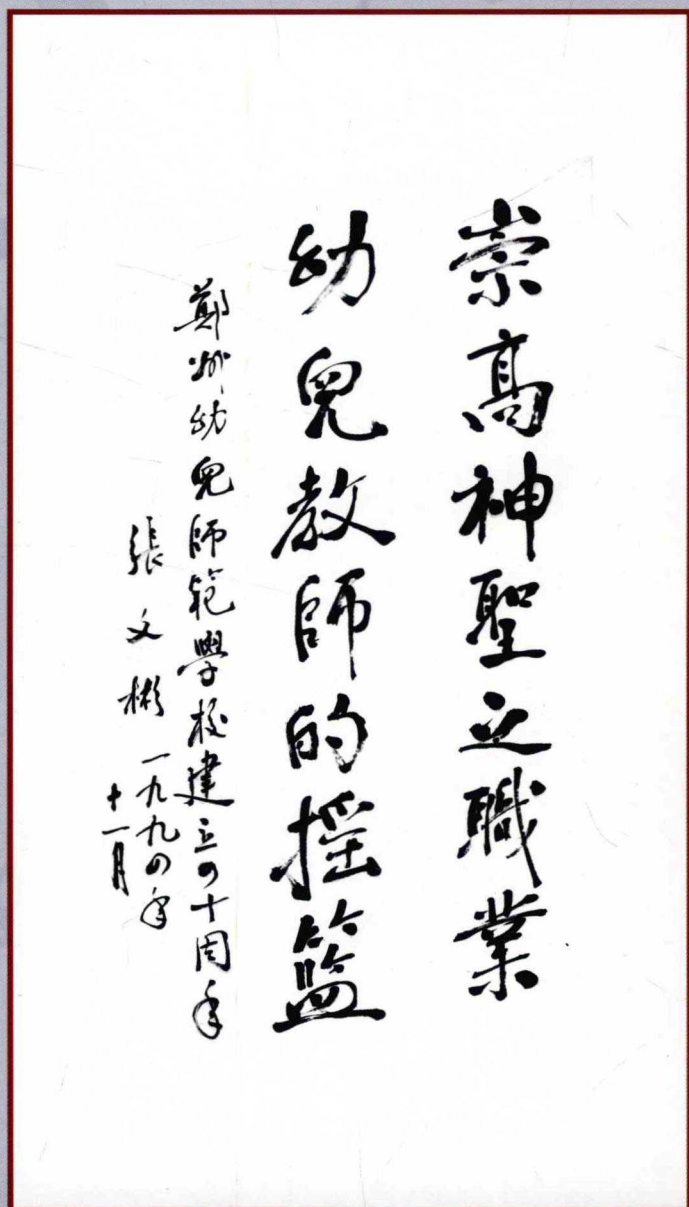 崇高神聖之職業
幼兒教師的搖籃
鄭州幼兒師範學校建立四十周年
張文彬 一九九四年
十一月